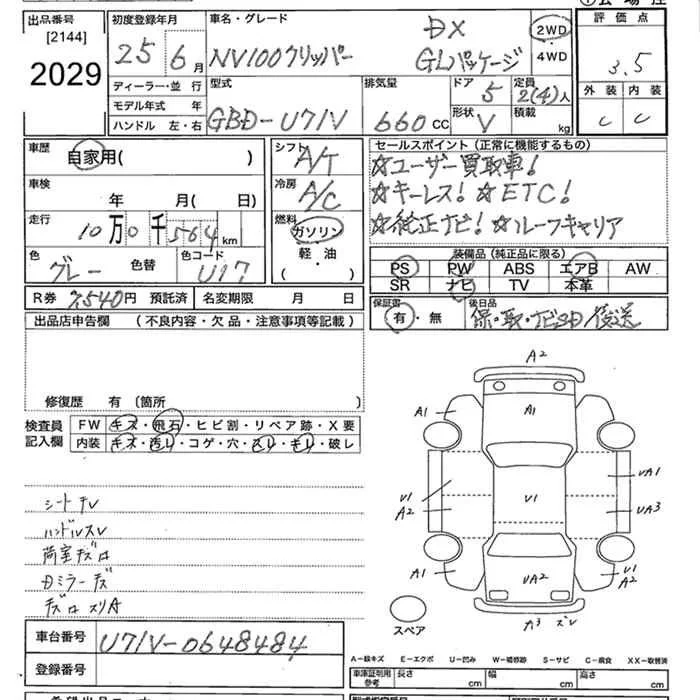 出品番号
[2144]
2029
初度登録年月
25 6月
車名・グレード
NV100クリッパー
DX
GLパッケージ
2WD
・
4WD
評価点
3.5
外装 内装
C C
ディーラー・並 行
モデル年式 年
ハンドル 左・右
型式
GBD-U71V
排気量
660CC
ドア
5
形状
V
定員
2(4)人
積載
kg
車歴
自家用( )
車検
年 月( 日)
走行
10万0千564km
色
グレー
色替
色コード
U17
シフト
A/T
冷房
A/C
燃料
ガソリン
軽・油
( )
セールスポイント(正常に機能するもの)
☆ユーザー買取車!
☆キーレス! ☆ETC!
☆純正ナビ! ☆ルーフキャリア
装備品(純正品に限る)
PS PW ABS エアB AW
SR ナビ TV 本革
R券 7,540円 預託済 名変期限 月 日
保証書
有・無
後日品
保・取・ナビSD/後送
出品店申告欄 (不良内容・欠品・注意事項等記載)
修復歴 有(箇所 )
検査員
記入欄
FW キズ・飛石・ヒビ割・リペア跡・X要
内装 キズ・汚レ・コゲ・穴・スレ・キレ・破レ
ハンドルスレ
荷室キズ
A2
A1
A1
U1
A2
U1
UA1
UA3
A1
UA2
U1
A2
A3
スペア
車台番号
U71V-0648484
登録番号
A-線キズ E-エクボ U-凹み W-補修跡 S-サビ C-腐食 XX-取替済
車庫証明用
参考
長さ cm 幅 cm 高さ cm